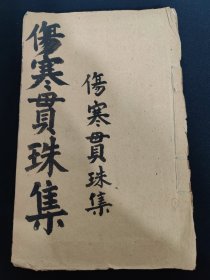 傷寒貫珠集
傷寒貫珠集